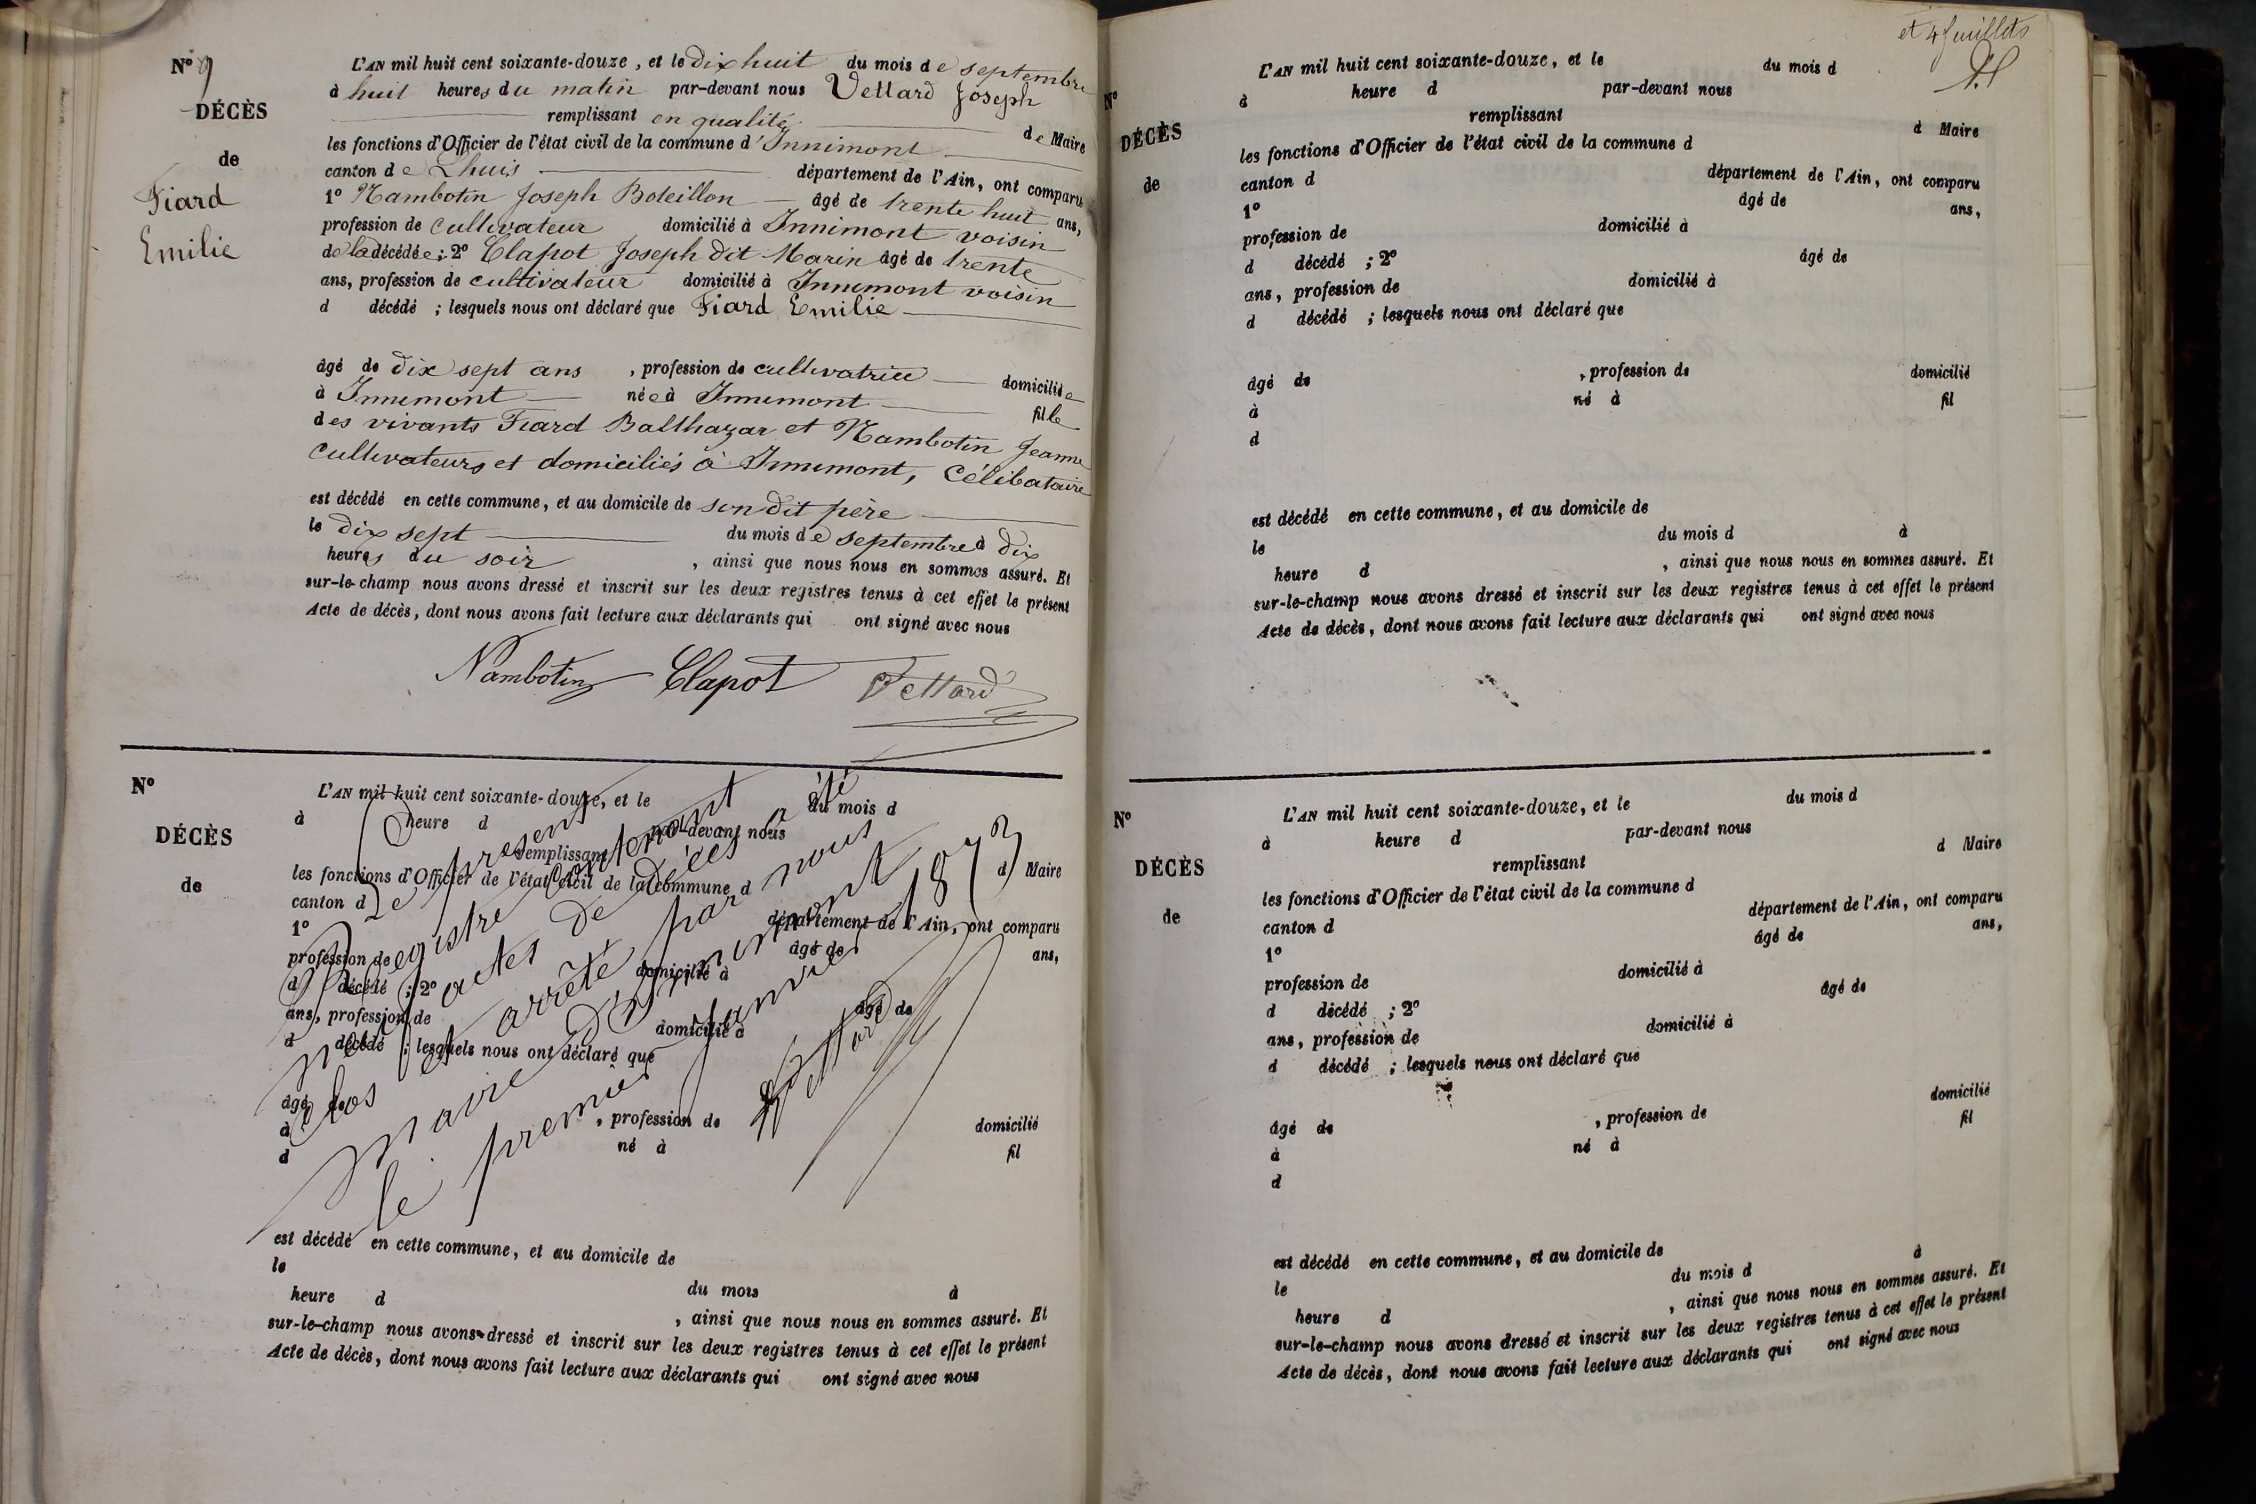 N° 9
DÉCÈS
de
Fiard
Emilie
L'AN mil huit cent soixante-douze, et le dix huit du mois de septembre
à huit heures du matin par-devant nous Vettard Joseph
remplissant en qualité de Maire
les fonctions d'Officier de l'état civil de la commune d'Innimont
canton de Lhuis département de l'Ain, ont comparu
1° Nambotin Joseph Boteillon âgé de trente huit ans,
profession de cultivateur domicilié à Innimont voisin
de la décédée ; 2° Clapot Joseph dit Marin âgé de trente
ans, profession de cultivateur domicilié à Innimont voisin
d décédé ; lesquels nous ont déclaré que Fiard Emilie
âgé de dix sept ans , profession de cultivatrice domiciliée
à Innimont née à Innimont fille
des vivants Fiard Balthazar et Nambotin Jeanne
cultivateurs et domiciliés à Innimont, célibataire
est décédé en cette commune, et au domicile de son dit père
le dix sept du mois de septembre à dix
heures du soir , ainsi que nous nous en sommes assuré. Et
sur-le-champ nous avons dressé et inscrit sur les deux registres tenus à cet effet le présent
Acte de décès, dont nous avons fait lecture aux déclarants qui ont signé avec nous
Nambotin Clapot Vettard
N°
DÉCÈS
de
L'AN mil huit cent soixante-douze, et le du mois d
à heure d par-devant nous
remplissant d Maire
les fonctions d'Officier de l'état civil de la commune d
canton d département de l'Ain, ont comparu
1° âgé de ans,
profession de domicilié à
d décédé ; 2° âgé de
ans, profession de domicilié à
d décédé ; lesquels nous ont déclaré que
âgé de , profession de domicilié
à né à fil
d
est décédé en cette commune, et au domicile de
le du mois à
heure d , ainsi que nous nous en sommes assuré. Et
sur-le-champ nous avons dressé et inscrit sur les deux registres tenus à cet effet le présent
Acte de décès, dont nous avons fait lecture aux déclarants qui ont signé avec nous
Le présent
registre contenant
actes de décès a été
clos et arrêté par nous
Maire d'Innimont
le premier janvier 1873
Vettard
et 4 feuillets
N°
DÉCÈS
de
L'AN mil huit cent soixante-douze, et le du mois d
à heure d par-devant nous
remplissant d Maire
les fonctions d'Officier de l'état civil de la commune d
canton d département de l'Ain, ont comparu
1° âgé de ans,
profession de domicilié à
d décédé ; 2° âgé de
ans, profession de domicilié à
d décédé ; lesquels nous ont déclaré que
âgé de , profession de domicilié
à né à fil
d
est décédé en cette commune, et au domicile de
le du mois d à
heure d , ainsi que nous nous en sommes assuré. Et
sur-le-champ nous avons dressé et inscrit sur les deux registres tenus à cet effet le présent
Acte de décès, dont nous avons fait lecture aux déclarants qui ont signé avec nous
N°
DÉCÈS
de
L'AN mil huit cent soixante-douze, et le du mois d
à heure d par-devant nous
remplissant d Maire
les fonctions d'Officier de l'état civil de la commune d
canton d département de l'Ain, ont comparu
1° âgé de ans,
profession de domicilié à
d décédé ; 2° âgé de
ans, profession de domicilié à
d décédé ; lesquels nous ont déclaré que
âgé de , profession de domicilié
à né à fil
d
est décédé en cette commune, et au domicile de
le du mois d à
heure d , ainsi que nous nous en sommes assuré. Et
sur-le-champ nous avons dressé et inscrit sur les deux registres tenus à cet effet le présent
Acte de décès, dont nous avons fait lecture aux déclarants qui ont signé avec nous